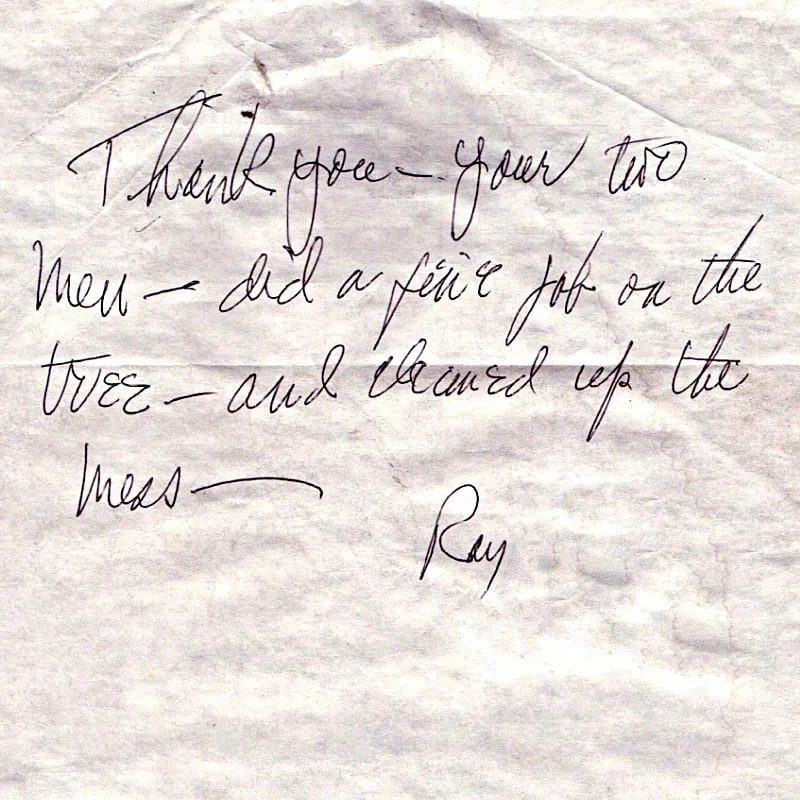 Thank you — your two
men — did a fine job on the
tree — and cleaned up the
mess —
Ray